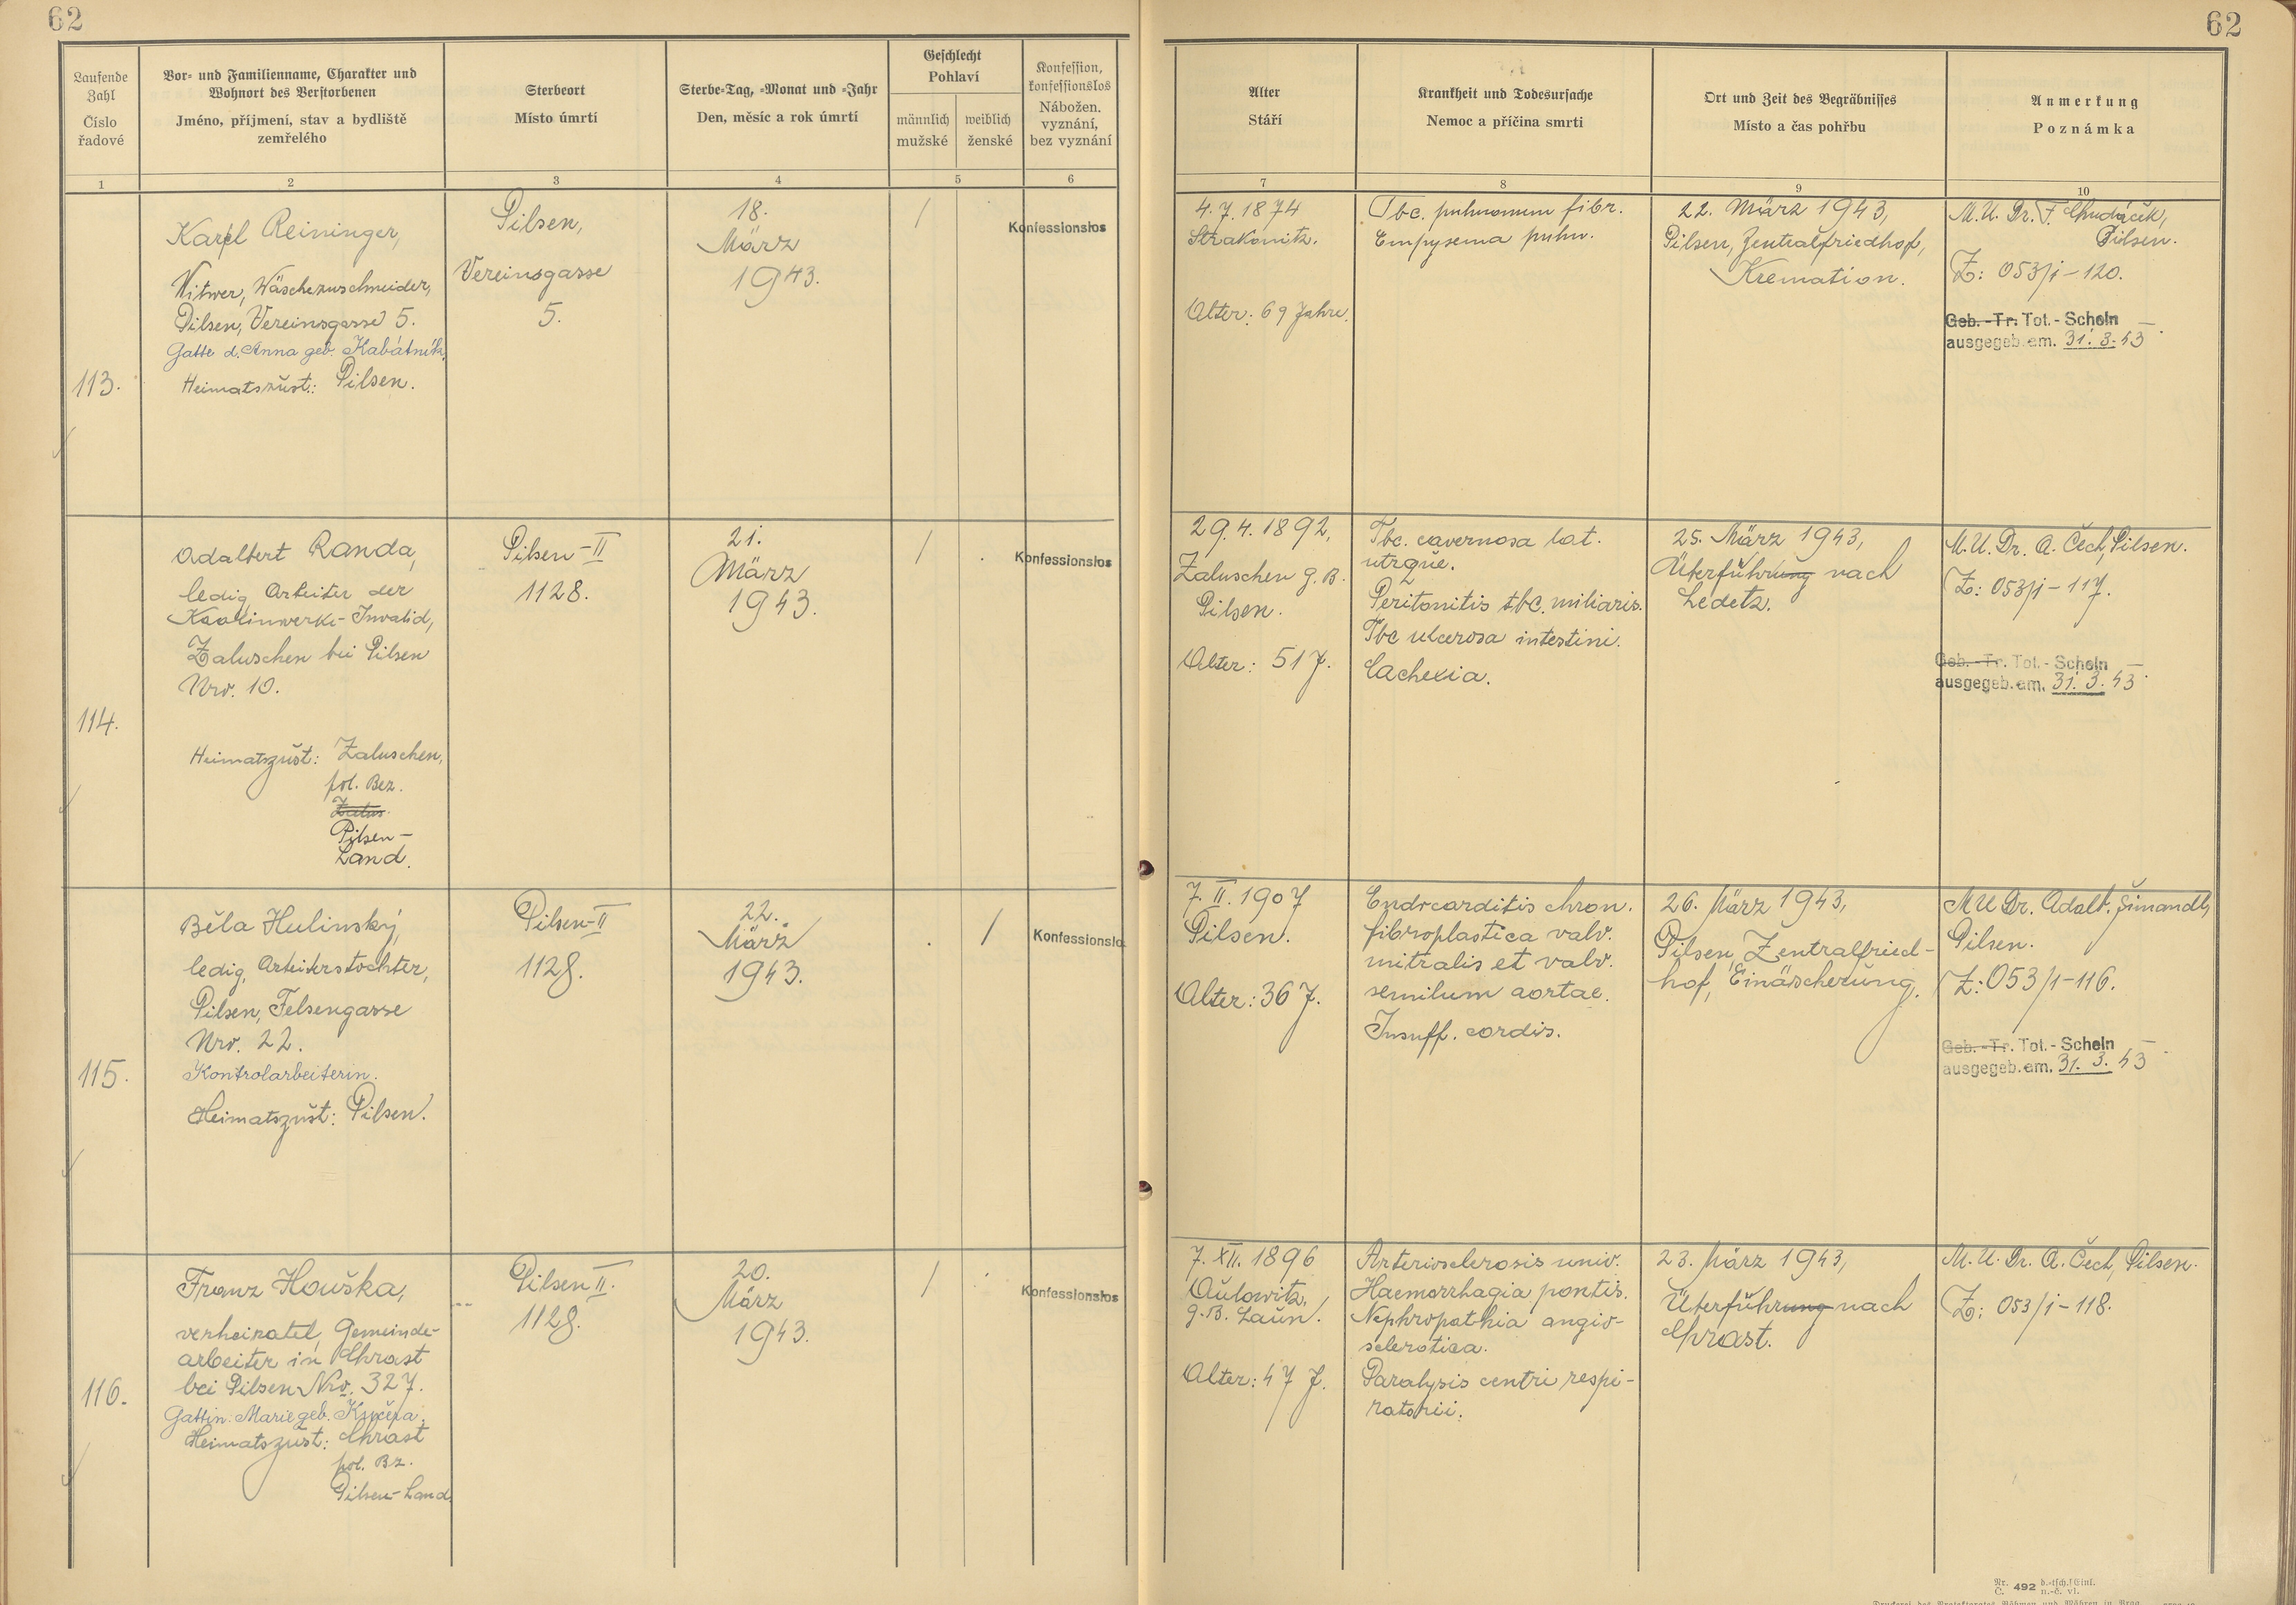 62
62
Laufende
Zahl
Číslo
řadové
Vor- und Familienname, Charakter und
Wohnort des Verstorbenen
Jméno, příjmení, stav a bydliště
zemřelého
Sterbeort
Místo úmrtí
Sterbe-Tag, -Monat und -Jahr
Den, měsíc a rok úmrtí
Geschlecht
Pohlaví
männlich
mužské
weiblich
ženské
Konfession,
konfessionslos
Nábožen.
vyznání,
bez vyznání
Alter
Stáří
Krankheit und Todesursache
Nemoc a příčina smrti
Ort und Zeit des Begräbnisses
Místo a čas pohřbu
Anmerkung
Poznámka
1
2
3
4
5
6
7
8
9
10
113.
Karl Reininger,
Witwer, Wäschezuschneider,
Pilsen, Vereinsgasse 5.
Gatte d. Anna geb. Kabátník
Heimatszust.: Pilsen.
Pilsen,
Vereinsgasse
5.
18.
März
1943.
/
Konfessionslos
4.7.1874
Strakonitz.
Alter: 69 Jahre.
Tbc. pulmonum fibr.
Empysema pulm.
22. März 1943,
Pilsen, Zentralfriedhof,
Kremation.
M.U. Dr. F. Chudáček,
Pilsen.
Z: 053/i-120.
Geb.-Tr. Tot.-Schein
ausgegeb. am. 31.3.43
114.
Adalbert Randa,
ledig, Arbeiter der
Kaolinwerke-Invalid,
Zaluschen bei Pilsen
Nro. 10.
Heimatszust: Zaluschen,
pol. Bez.
Zalus
Pilsen-
Land.
Pilsen-II
1128.
21.
März
1943.
/
Konfessionslos
29.4.1892,
Zaluschen g. B.
Pilsen.
Alter: 51 J.
Tbc. cavernosa lat.
utrque.
Peritonitis tbc. miliaris.
Tbc ulcerosa intestini.
Cachexia.
25. März 1943,
Überführung nach
Ledetz.
M.U. Dr. A. Čech, Pilsen.
Z: 053/i-117.
Geb.-Tr. Tot.-Schein
ausgegeb. am. 31.3.43
115.
Běla Hulinský,
ledig, Arbeiterstochter,
Pilsen, Felsengasse
Nro. 22.
Kontrolarbeiterin.
Heimatszust: Pilsen.
Pilsen-II
1128.
22.
März
1943.
/
Konfessionslo
7.II.1907
Pilsen.
Alter: 36 J.
Endocarditis chron.
fibroplastica valv.
mitralis et valv.
semilum aortae.
Insuff. cordis.
26. März 1943,
Pilsen, Zentralfried-
hof, Einäscherung.
MU Dr. Adalb. Šimandl,
Pilsen.
Z: 053/1-116.
Geb.-Tr. Tot.-Schein
ausgegeb. am. 31.3.43
116.
Franz Houška,
verheiratet, Gemeinde-
arbeiter in Chrast
bei Pilsen Nro. 327.
Gattin: Marie geb. Kučera.
Heimatszust: Chrast
pol. Bz.
Pilsen-Land
Pilsen II.
1128.
20.
März
1943.
/
Konfessionslos
7.XII.1896
Aulowitz,
g.B. Laun.
Alter: 47 J.
Arteriosclerosis univ.
Haemorrhagia pontis.
Nephropathia angio-
sclerotica.
Paralysis centri respi-
ratorii.
23. März 1943,
Überführung nach
Chrast.
M.U. Dr. A. Čech, Pilsen.
Z: 053/i-118.
Nr. 492 d.-tsch./Einl.
Č. n.-č. vl.
Druckerei des Protektorates Böhmen und Mähren in Prag